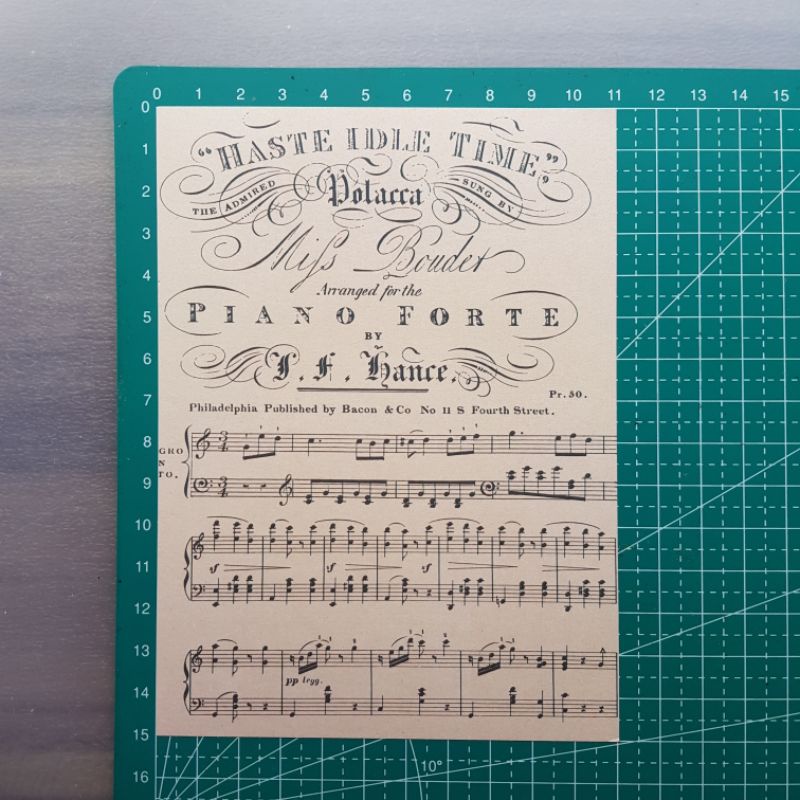 0 1 2 3 4 5 6 7 8 9 10 11 12 13 14 15
0
1
2
3
4
5
6
7
8
9
10
11
12
13
14
15
16
"HASTE IDLE TIME"
THE ADMIRED Polacca SUNG BY
Miſs Bouder
Arranged for the
PIANO FORTE
BY
J. F. Hance.
Pr. 50.
Philadelphia Published by Bacon & Co No 11 S Fourth Street.
GRO
N
TO.
sf sf sf
pp legg.
10°